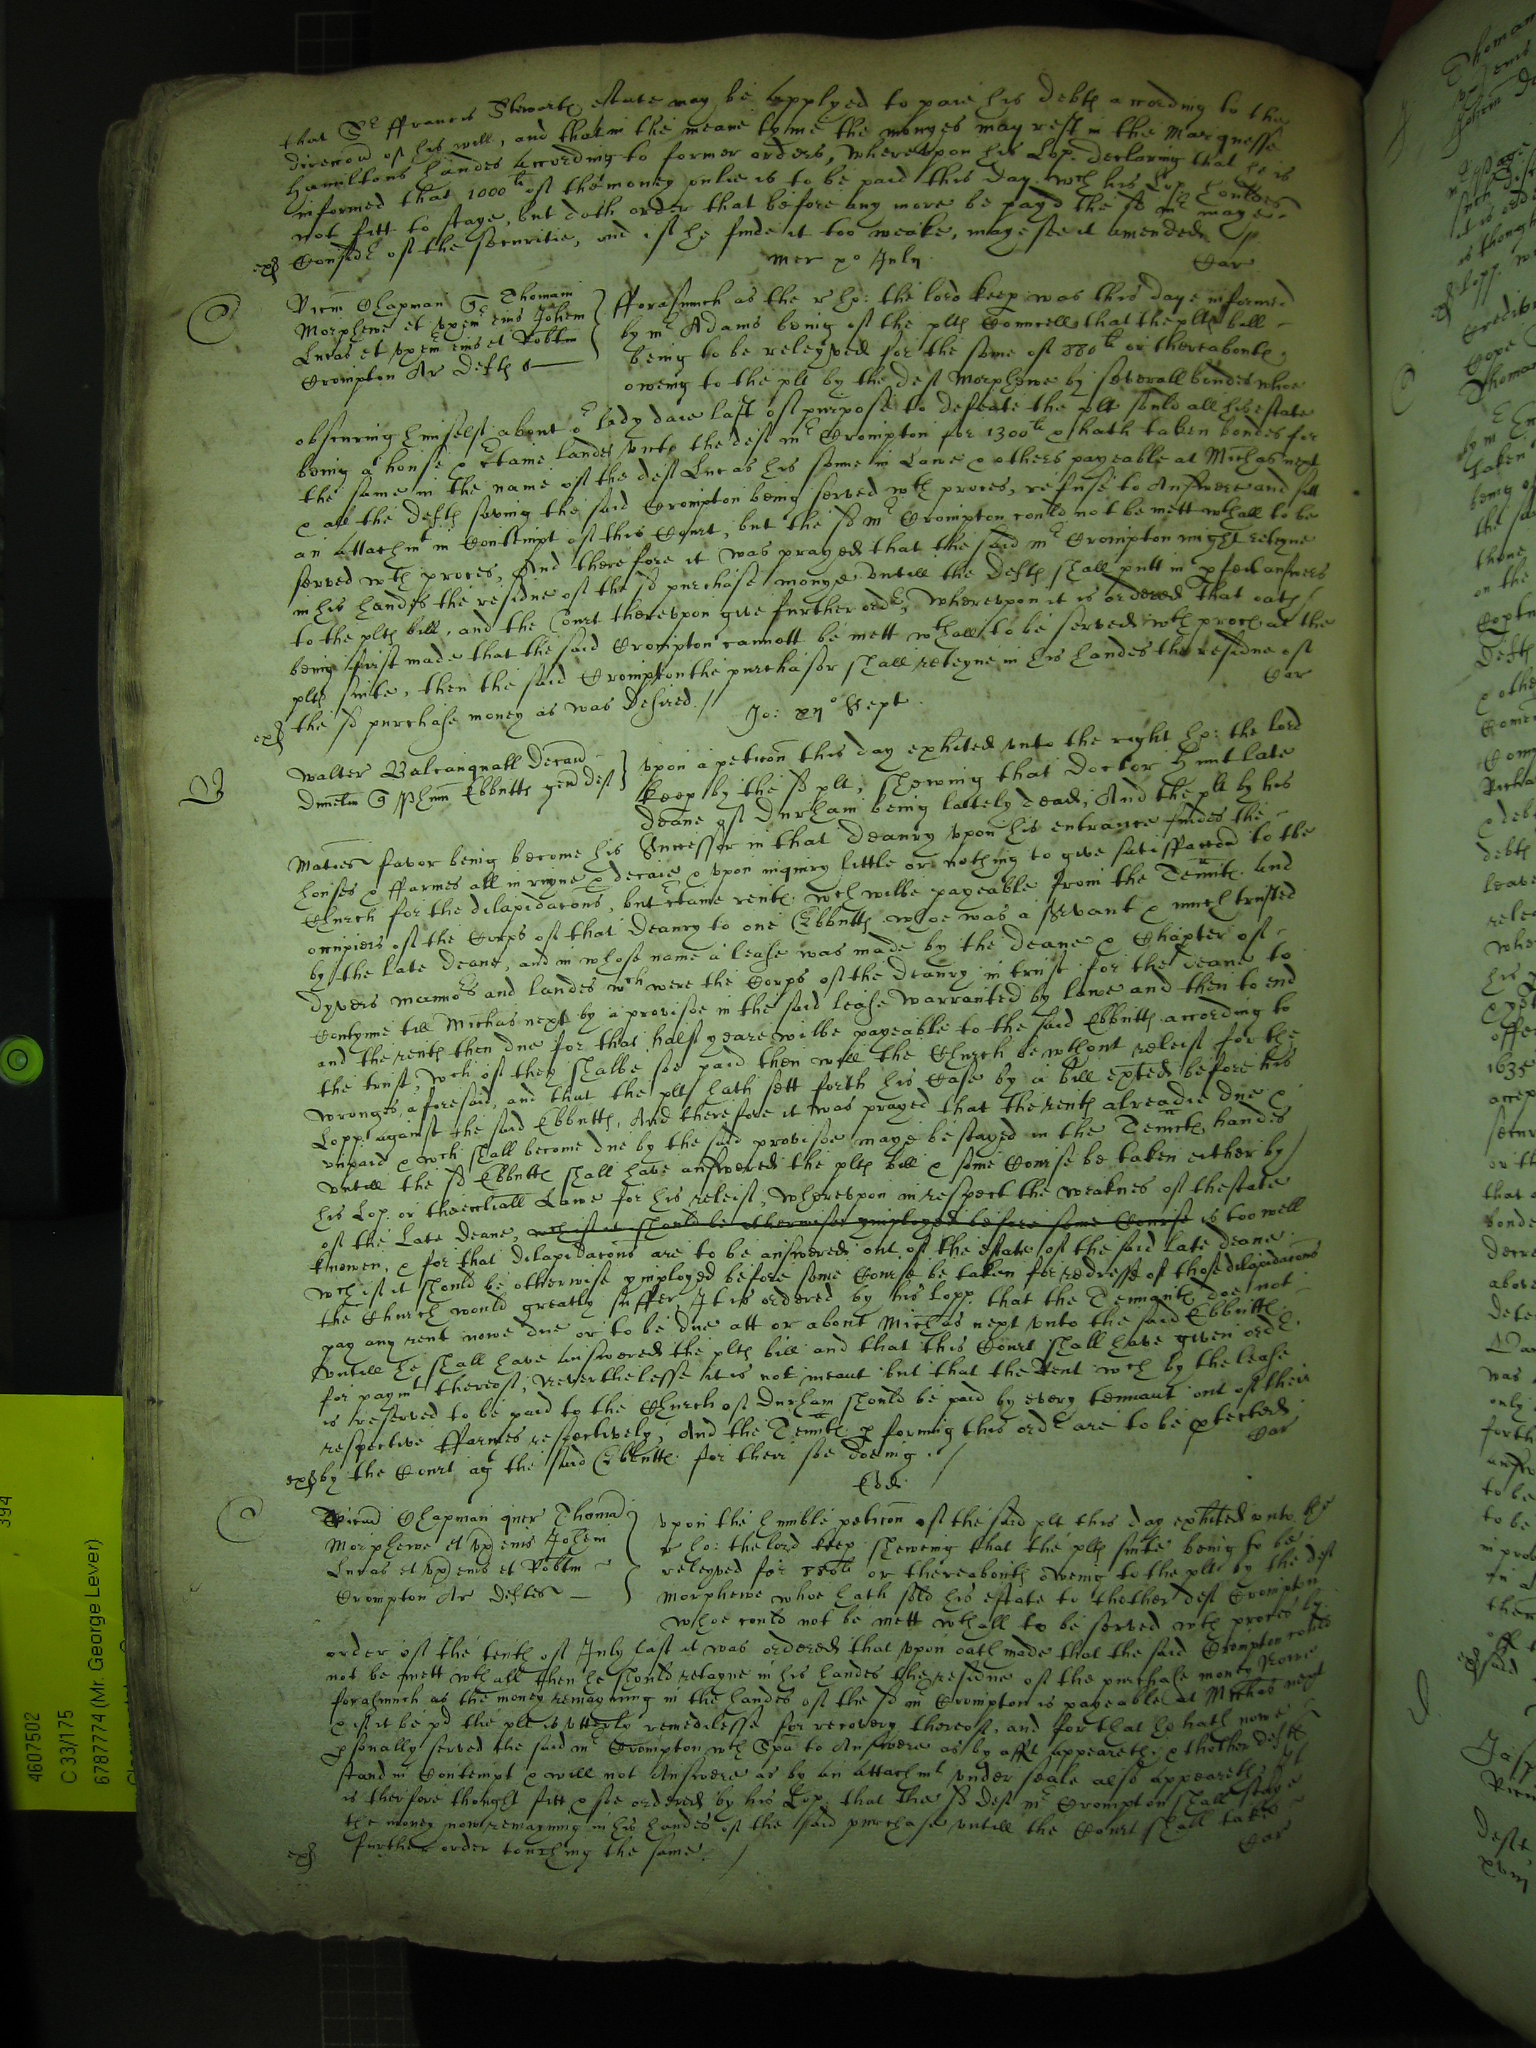 that Sr ffrancis Stewarts estate may be applyed to paie his debts according to the
direccon of his will, and that in the meane tyme the monyes may rest in the Marquesse
Hamiltons handes according to former orders, whereupon his Lop. declaring that he is
informed that 1000li of the money onlie is to be paid this day wch his Lop. houldes
not fitt to staye, but doth order that before any more be payd the sd mr maye
Considr of the securitie, and if he finde it too weake, maye see it amended
exd
Mer xo July
Car
C
Vicm Chapman Qr Thomam
Morphewe et uxem eius Johem
Lucas et uxem eius et Robtm
Crompton Ar Defts
fforasmuch as the r ho: the lord keep was this daye informed
by mr Adams being of the plts Councell that the plts bill
being to be releyved for the some of 880li or thereabouts
oweing to the plt by the deft Morphewe by severall bondes whoe
obscuring himselfe about or lady daie last of purpose to defeate the plt sould all his estate
being a house & ctaine landes unto the deft mr Crompton for 1300li & hath taken bondes for
the same in the name of the deft Lucas his sonne in Lawe & others payeable at Michas next
& all the defts saving the said Crompton being served wth proces, refuse to Answere and sitt
an attachmt in Contempt of this Court, but the sd mr Crompton could not be mett wthall to be
served wth proces, And therefore it was prayed that the said mr Crompton might reteyne
in his handes the residue of the sd purchase monye untill the defts shall putt in pfect answers
to the plts bill, and the Court thereupon give further ordr, Whereupon it is ordered that oath
being first made that the said Crompton cannott be mett wthall to be served wth proces at the
plts suite, then the said Crompton the purchasor shall reteyne in his handes the residue of
the sd purchase money as was desired
exd
Car
Jo: xxio Sept
Walter Balcanquall Decan
Dunelm Q Ebbutts gen deft
upon a peticon this day exhited unto the right ho: the lord
keep by the sd plt, shewing that Doctor Hunt late
deane of Durham being lattely dead, And the plt by his
Maties favor being become his Successor in that deanry upon his entrance findes the
houses & ffarmes all in ruyne & decaie & upon inquiry little or nothing to give satisfaccon to the
Church for the dilapidacons, but ctaine rents wch wilbe payeable from the Tennts and
occupiers of the Corps of that Deanry to one Ebbutts whoe was a servant & much trusted
by the late deane, and in whose name a lease was made by the deane & Chapter of
dyvers mannors and landes wch were the Corps of the deanry in trust for the deane to
Contynue till Michas next by a provisoe in the said lease warranted by lawe and then to end
and the rents then due for that halfe yeare wilbe payeable to the said Ebbutts according to
the trust, wch if they shalbe soe paid then will the Church be wthout releife for the
wronges aforesaid, and that the plt hath sett forth his Case by a bill exted before his
Lopp. against the said Ebbutts, And therefore it was prayed that the rents alreadie due &
unpaid & wch shall become due by the said provisoe maye be stayed in the Tennts handes
untill the sd Ebbutts shall have answered the plts bill & some Course be taken either by
his Lop. or the ecclicall Lawe for his releife, Whereupon in respect the weaknes of thestate
of the late Deane, wch if it should be otherwise ymployed before some Course is too well
knowen, & for that dilapidacons are to be answered out of the estate of the said late deane
wch if it should be otherwise ymployed before some Course be taken for redresse of those dilapidacons
the Church would greatly suffer, It is ordered by his Lopp. that the Tennants doe not
pay any rent nowe due or to be due att or about Michas next unto the said Ebbutts
untill he shall have answered the plts bill and that this Court shall have given ordr
for paymt thereof, neverthelesse it is not meant but that the rent wch by the lease
is reserved to be paid to the Church of Durham should be paid by every tennant out of their
respective ffarmes respectively, And the Tennts pforming this ordr are to be ptected
by the Court agt the said Ebbutts for their soe doeing
exd
Car
Eod
C
Vicm Chapman quer Thomam
Morphewe et ux eius Johem
Lucas et ux eius et Robtm
Crompton Ar Deftes
upon the humble peticon of the said plt this day exhited unto the
r ho: the lord keep shewing that the plts suite being to be
releyved for 880li or thereabouts oweing to the plt by the deft
Morphewe whoe hath sold his estate to thother deft Crompton
whoe could not be mett wthall to be served wth proces by
order of the tenth of July last it was ordered that upon oath made that the said Crompton could
not be mett wthall then he should retayne in his handes the residue of the purchase money Nowe
forasmuch as the money remayning in the handes of the sd mr Crompton is payeable at Michas next
& if it be pd the plt is utterly remedilesse for recovery thereof, and for that he hath nowe
psonally served the said mr Crompton wth Spa to Answere as by afft appeareth, & thother defts
stand in Contempt & will not Answere as by an attachmt under seale also appeareth, It
is therfore thought fitt & soe ordered by his Lop. that the sd deft mr Crompton shall staye
the money now remayning in his handes of the said purchase untill the Court shall take
further order touching the same
exd
Car
394
4607502
C 33/175
6787774 (Mr. George Lever)